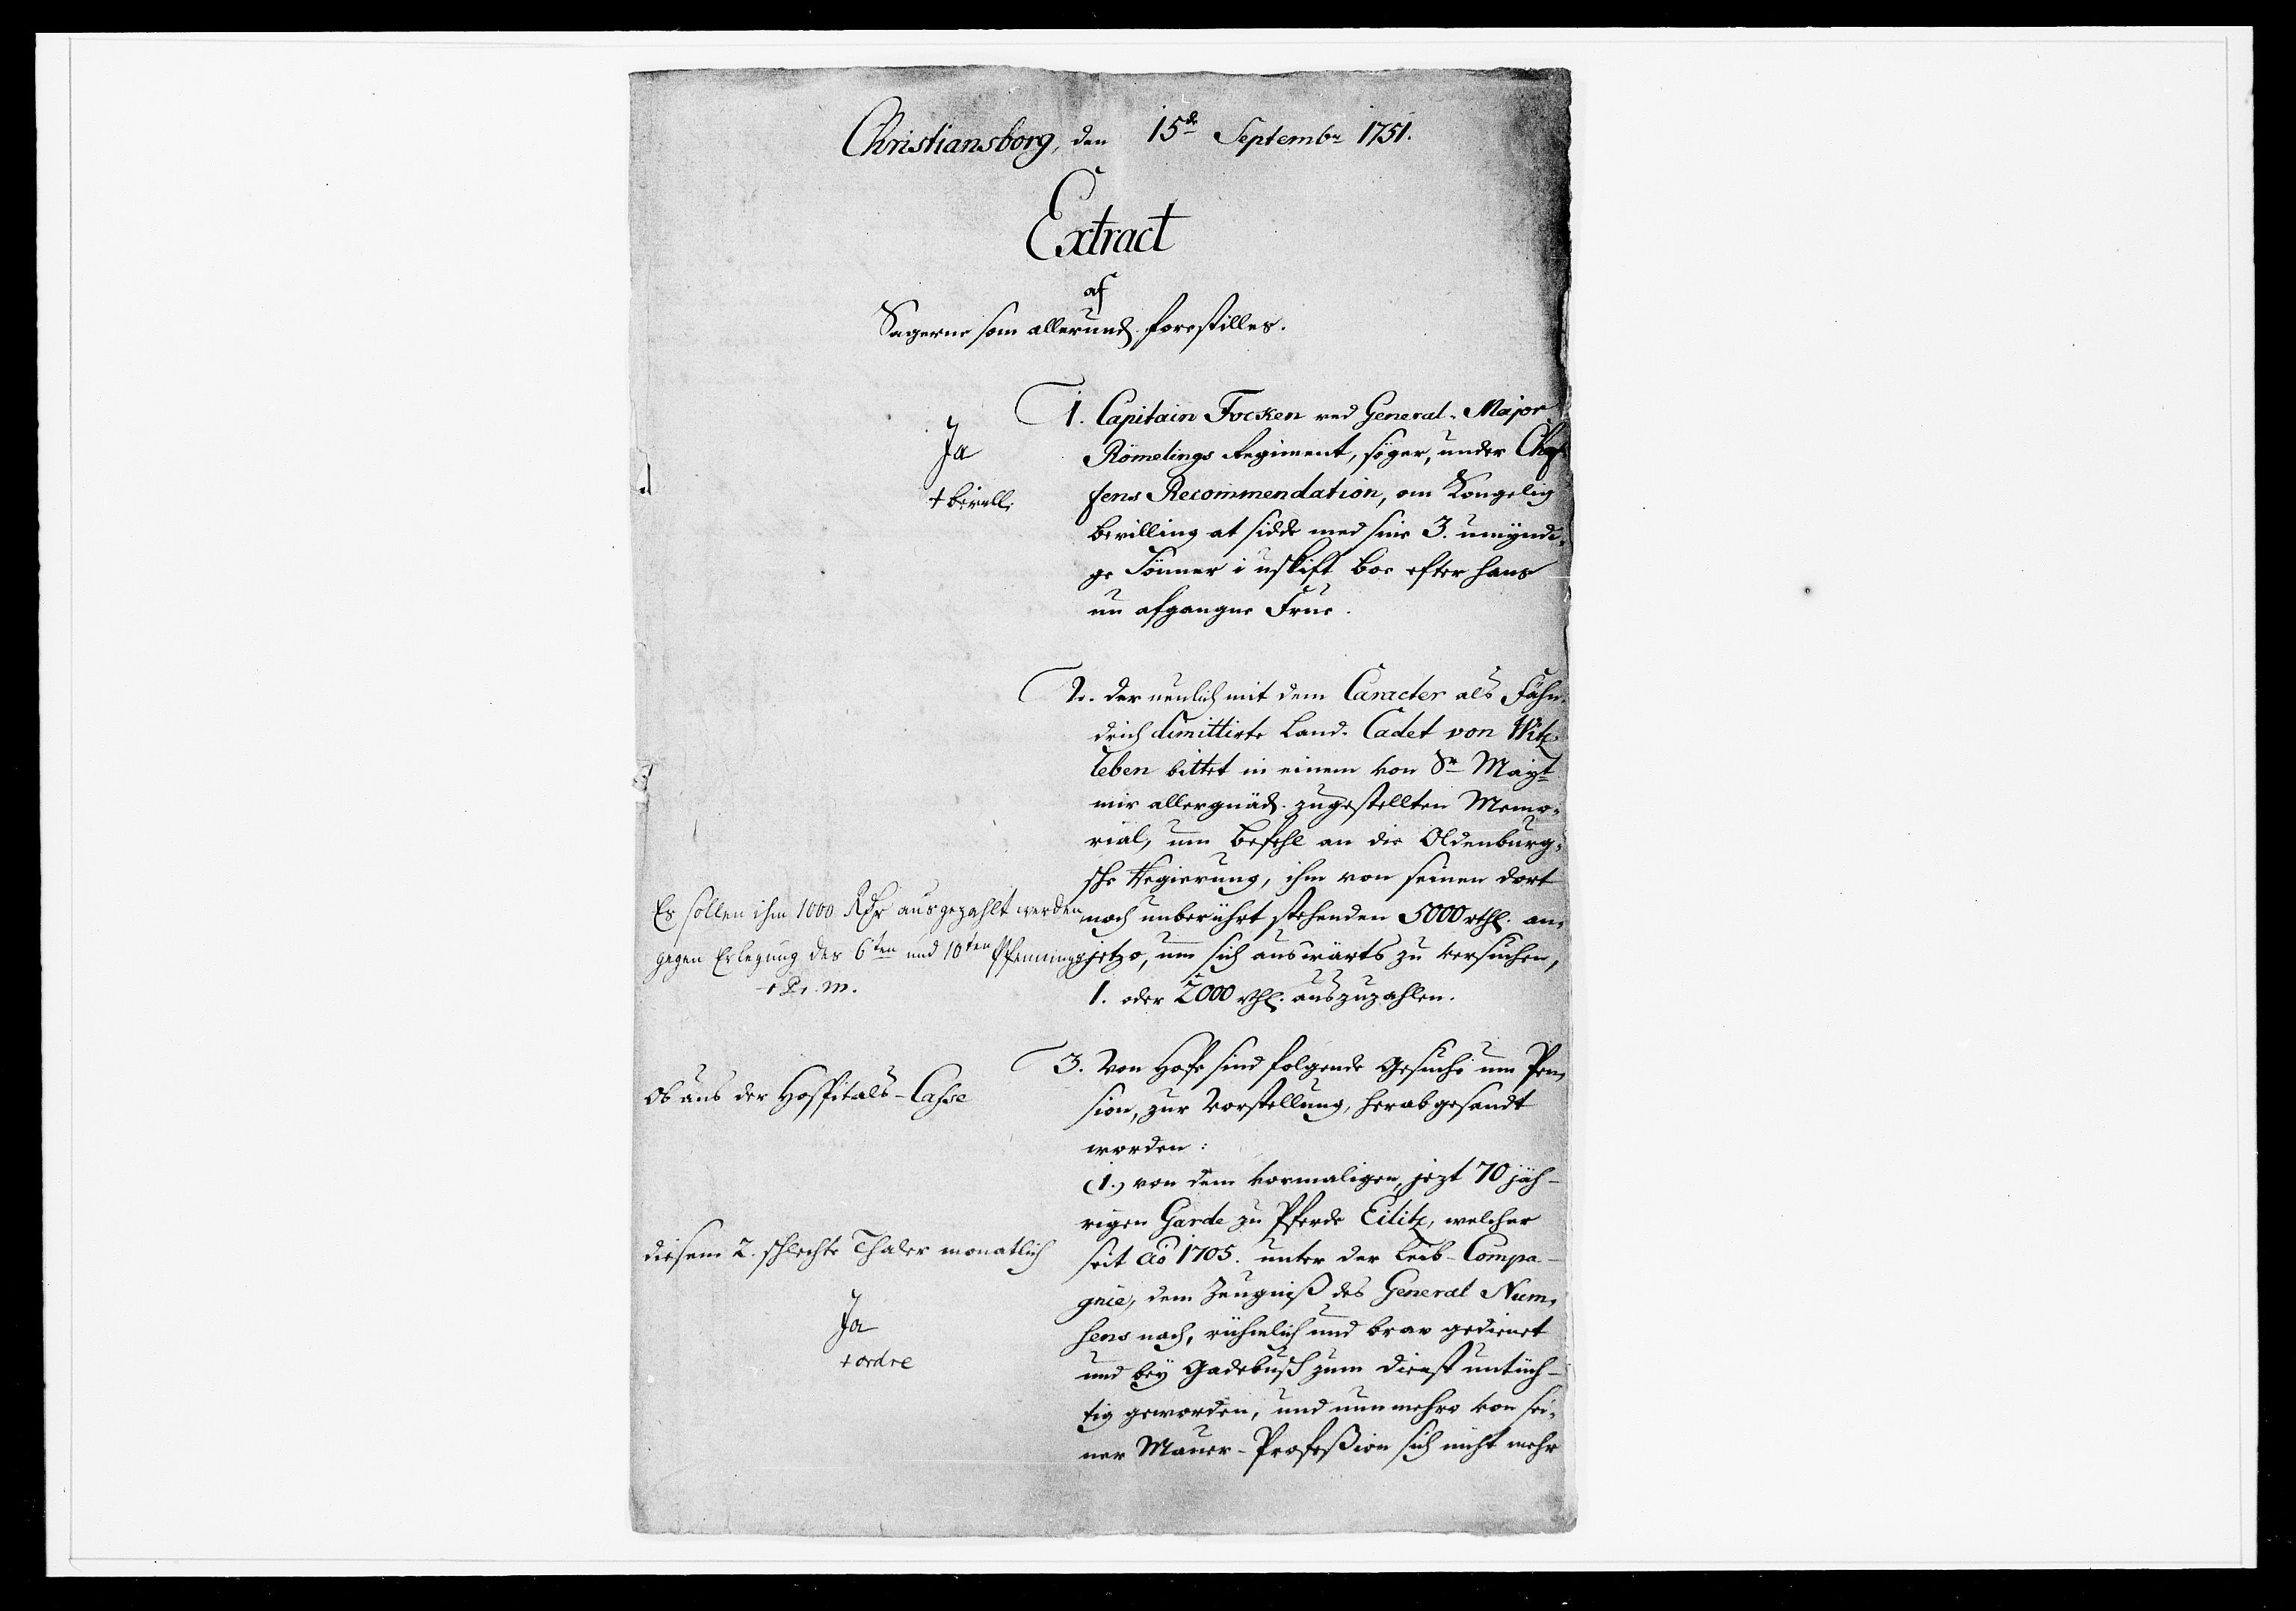 Christiansborg, den 15de Septembr 1751.
Extract
af
Sagerne som allerund. forestilles.
1. Capitain Focken ved General-Major
Römelings Regiment, söger, under Chef-
fens Recommendation, om Kongelig
bevilling at sidde med sine 3. umÿndi-
ge Sönner i uskift boe efter hans
nu afgangne Frue.
Ja
+ bevill.
2. der neulich mit dem Caracter als Fähn-
drich dimittirte Land-Cadet von Witz-
leben bittet in einem von Sr Mayt
mir allergnäd. zugestellten Memo-
rial, um Befehl an die Oldenburg-
sche Regierung, ihm von seinen dort
noch unberührt stehenden 5000 rthl. an-
jetzo, um sich auswärts zu versuchen,
1. oder 2000 rthl. auszuzahlen.
Es sollen ihm 1000 Rdr ausgezahlt werden
gegen Erlegung des 6ten und 10ten Pfennings
+ P. M.
3. Von Hofe sind folgende Gesuche um Pen-
sion, zur Vorstellung, herabgesandt
worden:
Ob aus der Hospitals-Casse
(1.) von dem vormaligen, jezt 70 jäh-
rigen Garde zu Pferde Eilitz, welcher
seit Ao 1705. unter der Leib-Compa-
gnie, dem Zeugniß des General Num-
sens nach, rühmlich und brav gedienet
und beÿ Gadebusch zum dienst untüch-
tig geworden, und nunmehro von sei-
ner Maurer-Profeßion sich nicht mehr
diesem 2. schlechte Thaler monatlich
Ja
+ ordre